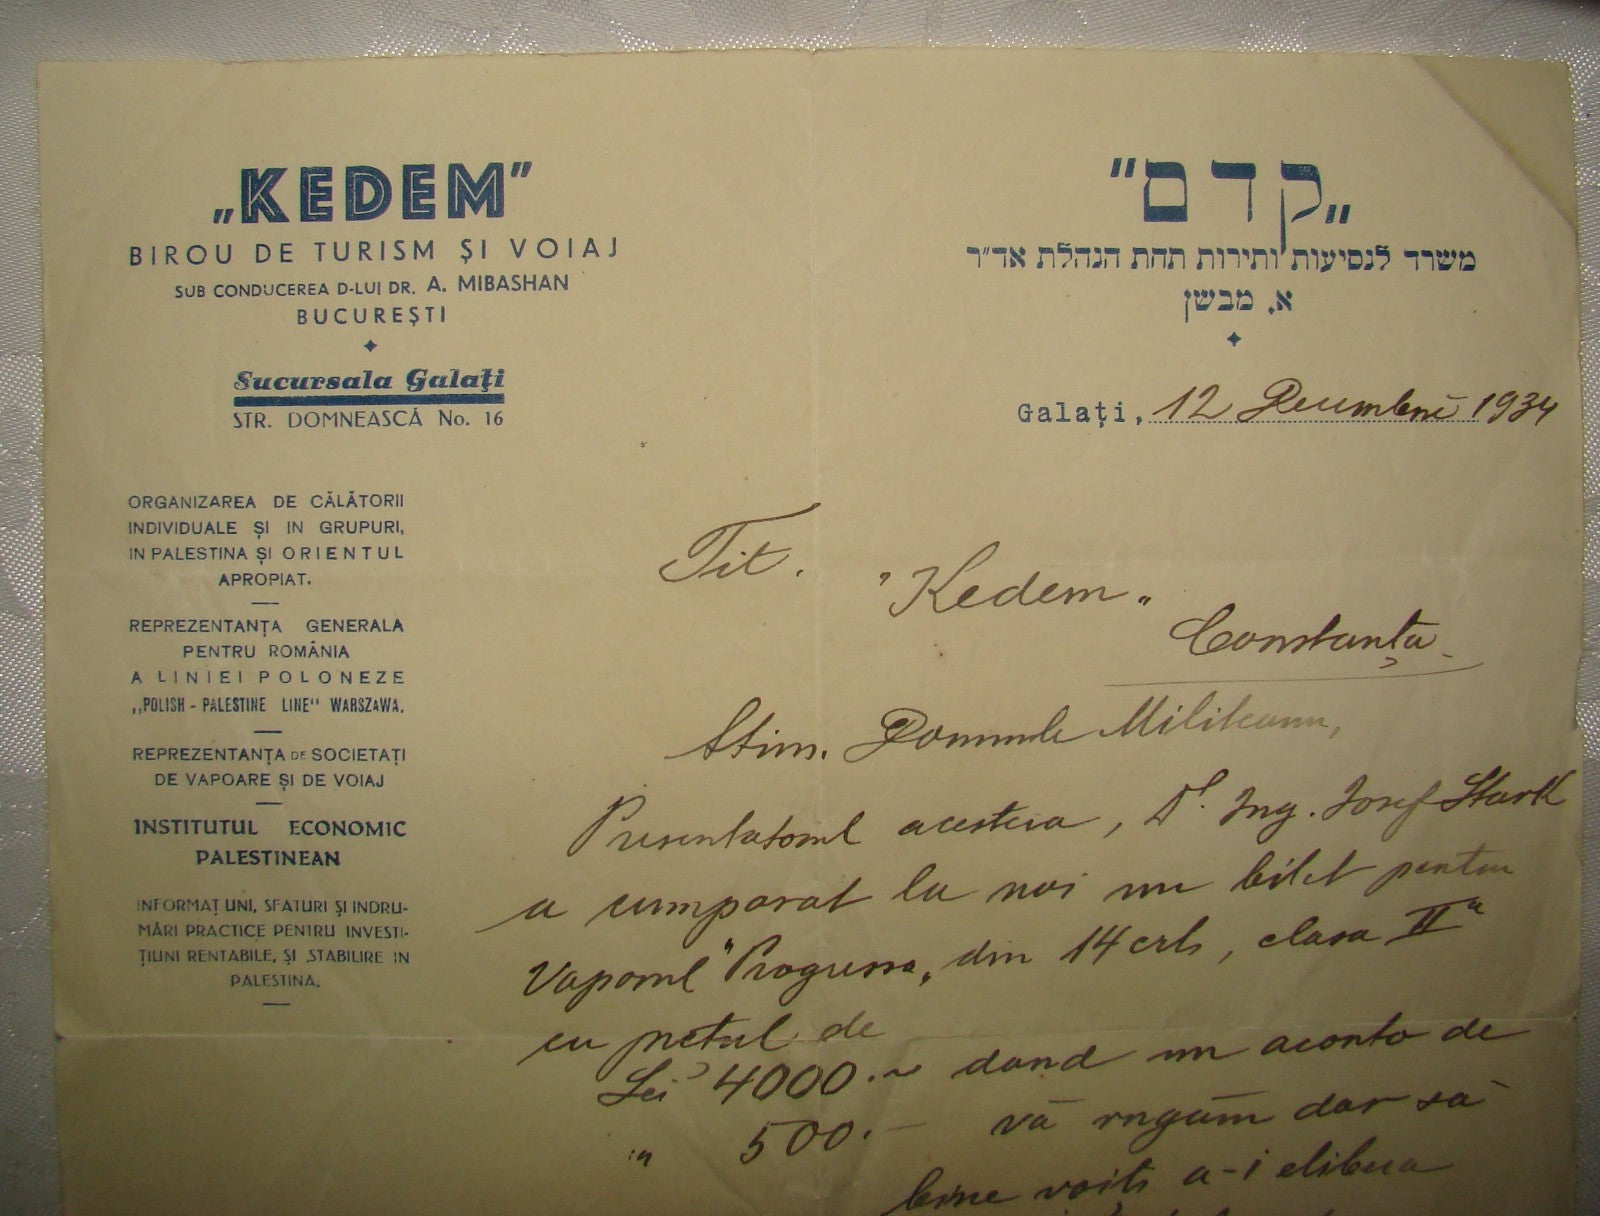 „KEDEM”
BIROU DE TURISM ȘI VOIAJ
SUB CONDUCEREA D-LUI DR. A. MIBASHAN
BUCUREȘTI
Sucursala Galați
STR. DOMNEASCĂ No. 16
ORGANIZAREA DE CĂLĂTORII
INDIVIDUALE ȘI IN GRUPURI,
IN PALESTINA ȘI ORIENTUL
APROPIAT.
REPREZENTANȚA GENERALA
PENTRU ROMÂNIA
A LINIEI POLONEZE
„POLISH - PALESTINE LINE" WARSZAWA.
REPREZENTANȚA DE SOCIETAȚI
DE VAPOARE ȘI DE VOIAJ
INSTITUTUL ECONOMIC
PALESTINEAN
INFORMAȚIUNI, SFATURI ȘI INDRU-
MĂRI PRACTICE PENTRU INVESTI-
ȚIUNI RENTABILE, ȘI STABILIRE IN
PALESTINA.
„קדם”
משרד לנסיעות ותירות תחת הנהלת אד״ר
א. מבשן
Galați, 12 Decembrie 1934
Tit.
"Kedem"
Constanța
Stim. Domnule Militeanu,
Presentatorul acesteia, Dl. Ing. Josef Stark
a cumparat la noi un bilet pentru
Vaporul "Progressa" din 14 crts, clasa II a
cu prețul de
Lei 4000.- dand un aconto de
" 500.- vă rugăm dar să
bine voiți a-i elibera